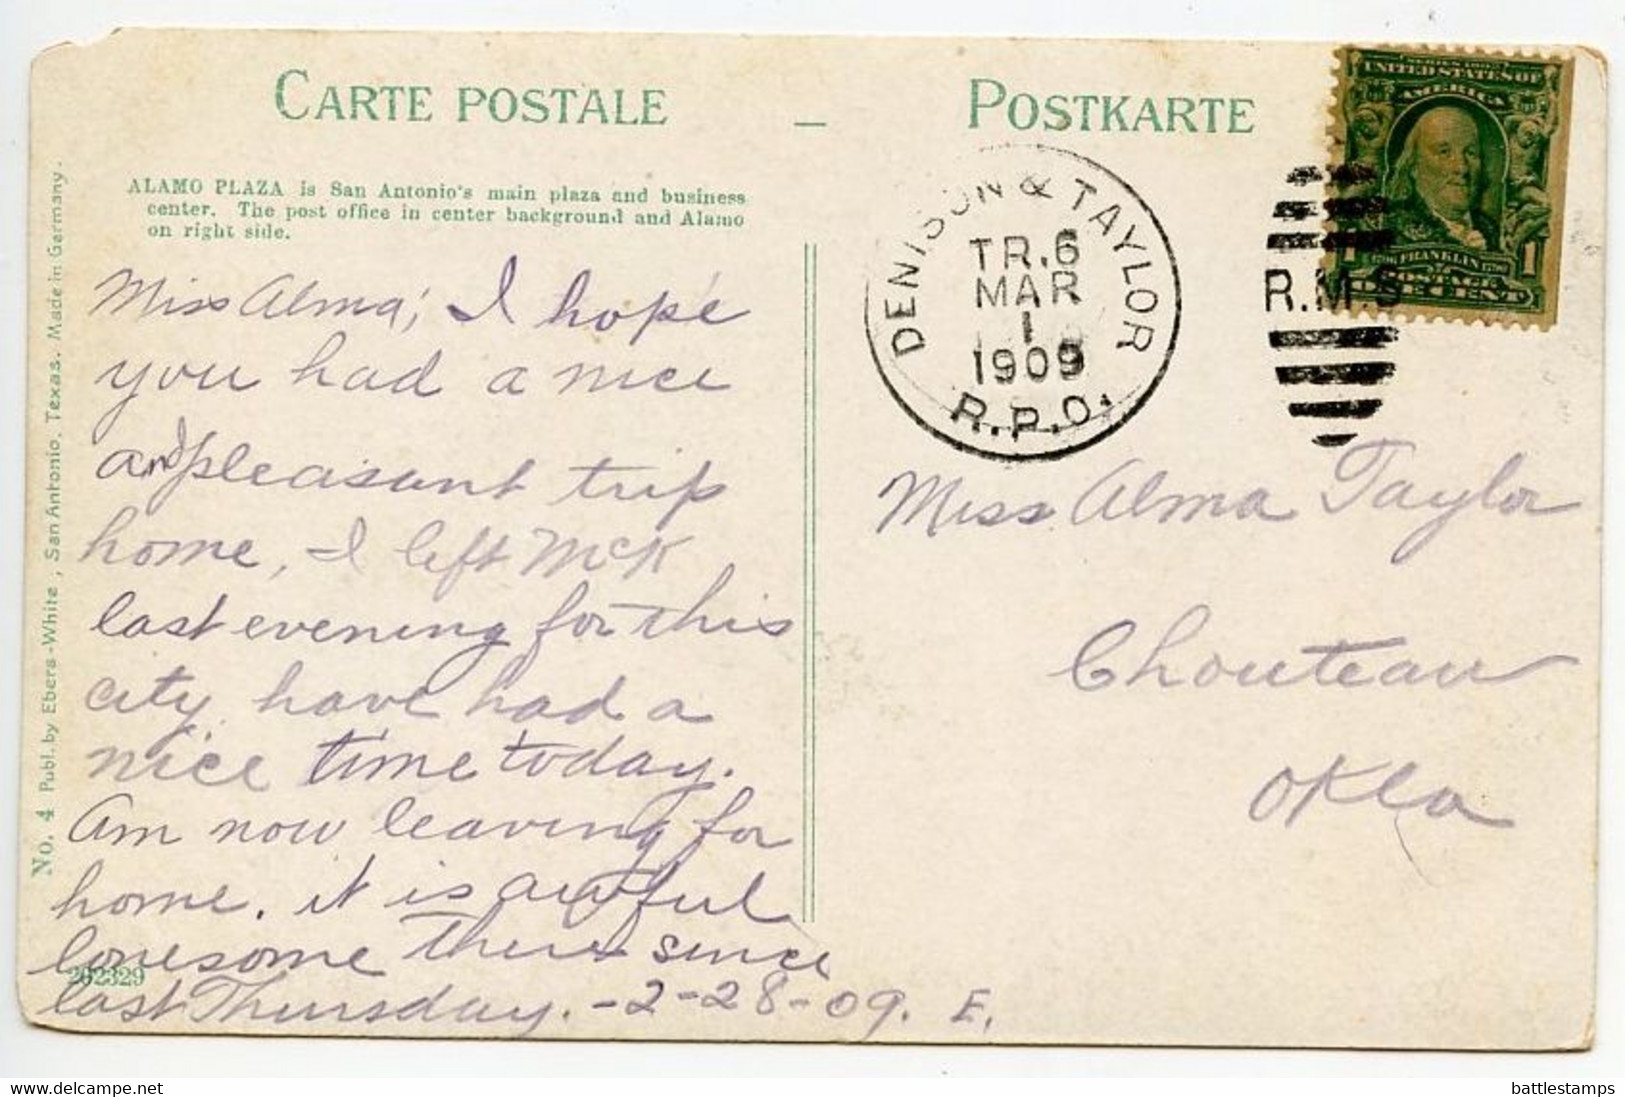 CARTE POSTALE — POSTKARTE
ALAMO PLAZA is San Antonio's main plaza and business
center. The post office in center background and Alamo
on right side.
No. 4 Publ. by Ebers-White, San Antonio, Texas. Made in Germany.
Miss Alma; I hope
you had a nice
and pleasant trip
home, I left McK
last evening for this
city have had a
nice time today.
Am now leaving for
home. it is awful
lonesome there since
last Thursday. -2-28-09. E.
202329
DENISON & TAYLOR
TR. 6
MAR
1
1909
R.P.O.
R.M.S
SERIES 1902
UNITED STATES OF
AMERICA
1706 FRANKLIN 1790
POSTAGE
1 ONE CENT 1
Miss Alma Taylor
Chouteau
Okla
hippostcard.com
battlestamps